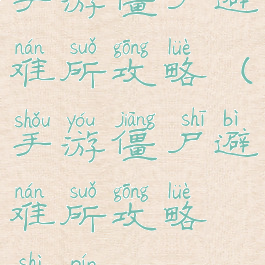 手游僵尸避
nán suǒ gōng lüè
难所攻略（
shǒu yóu jiāng shī bì
手游僵尸避
nán suǒ gōng lüè
难所攻略
shì pín